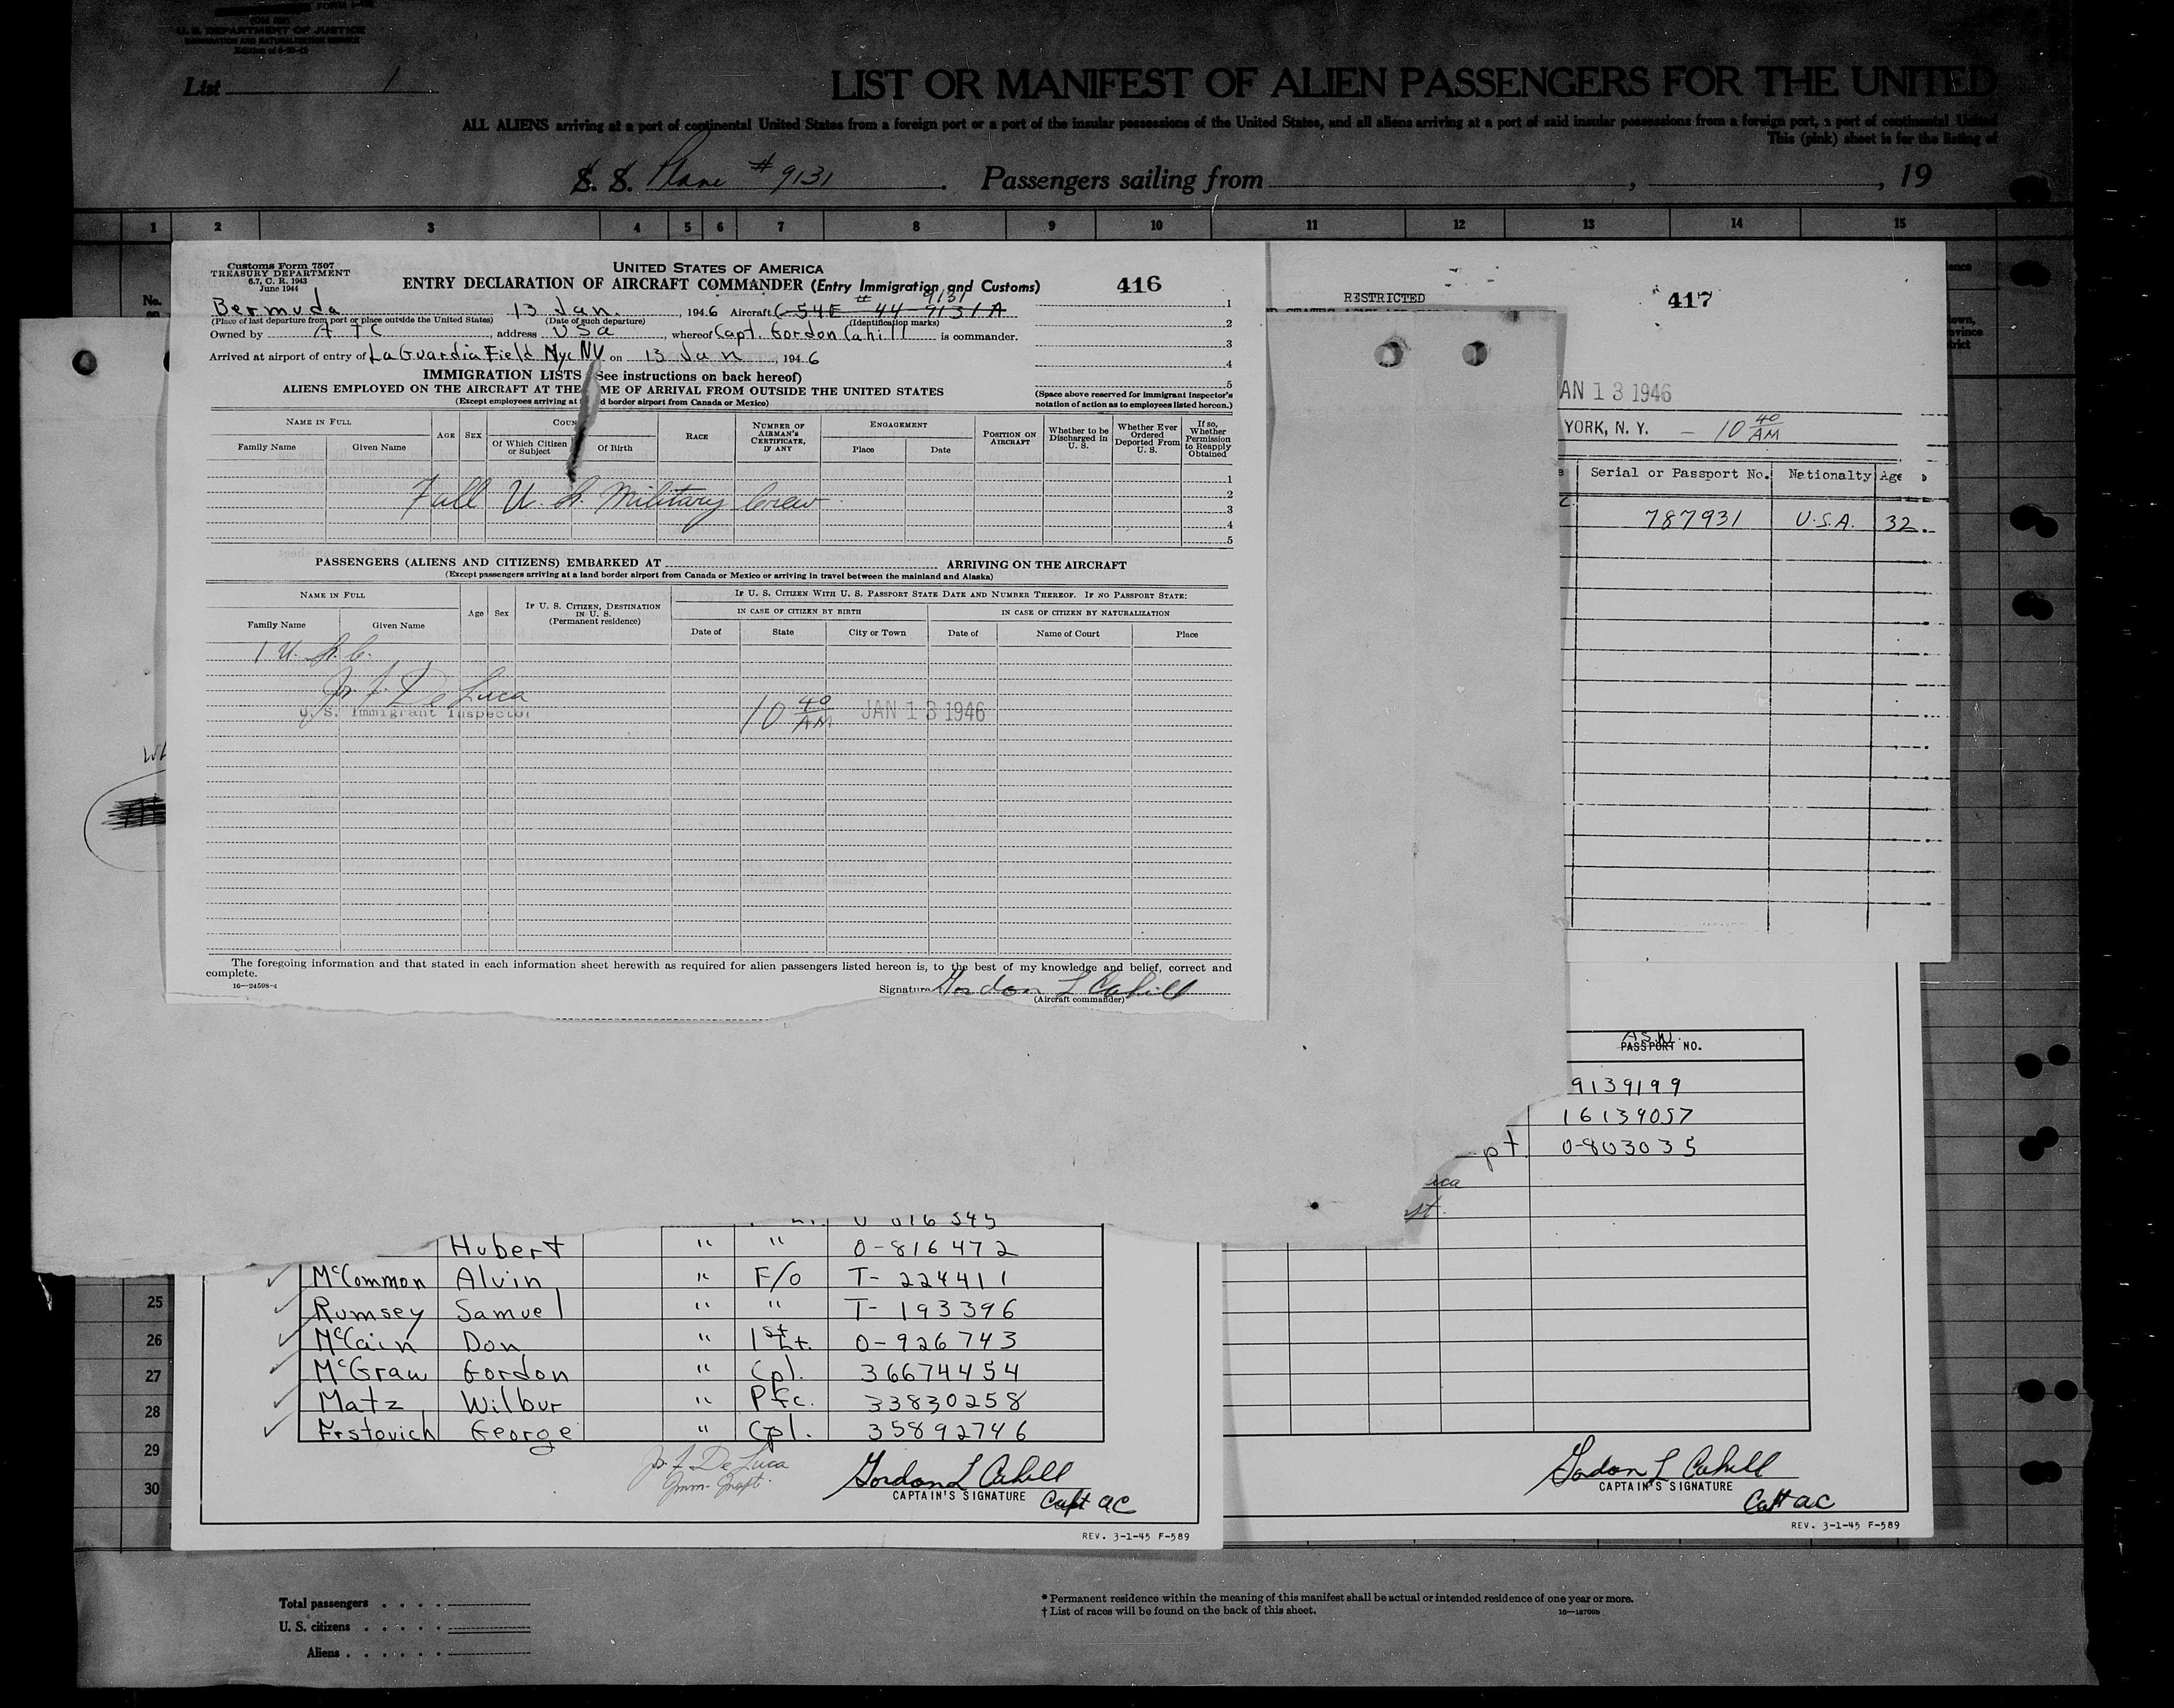 U. S. DEPARTMENT OF JUSTICE
IMMIGRATION AND NATURALIZATION SERVICE
List 1
LIST OR MANIFEST OF ALIEN PASSENGERS FOR THE UNITED
ALL ALIENS arriving at a port of continental United States from a foreign port or a port of the insular possessions of the United States, and all aliens arriving at a port of said insular possessions from a foreign port, a port of continental United
This (pink) sheet is for the listing of
S. S. Plane # 9131 . Passengers sailing from , , 19
1 2 3 4 5 6 7 8 9 10 11 12 13 14 15
No.
Customs Form 7507
TREASURY DEPARTMENT
6.7, C. R. 1943
June 1944
UNITED STATES OF AMERICA
ENTRY DECLARATION OF AIRCRAFT COMMANDER (Entry Immigration and Customs)
416
# 9131
Bermuda 13 Jan. , 1946 Aircraft C-54E 44-9131A
(Place of last departure from port or place outside the United States) (Date of such departure) (Identification marks)
Owned by ATC address USa , whereof Capt. Gordon Cahill is commander.
Arrived at airport of entry of LaGuardia Field Nyc NY on 13 Jan , 1946
1
2
3
4
5
(Space above reserved for immigrant inspector's notation of action as to employees listed hereon.)
IMMIGRATION LISTS (See instructions on back hereof)
ALIENS EMPLOYED ON THE AIRCRAFT AT THE ME OF ARRIVAL FROM OUTSIDE THE UNITED STATES
(Except employees arriving at d border airport from Canada or Mexico)
NAME IN FULL
Family Name Given Name
AGE SEX
COUN
Of Which Citizen or Subject Of Birth
RACE
NUMBER OF AIRMAN'S CERTIFICATE, IF ANY
ENGAGEMENT
Place Date
POSITION ON AIRCRAFT
Whether to be Discharged in U. S.
Whether Ever Ordered Deported From U. S.
If so, Whether Permission to Reapply Obtained
1
2
3
4
5
Full U. S. Military Crew
PASSENGERS (ALIENS AND CITIZENS) EMBARKED AT ARRIVING ON THE AIRCRAFT
(Except passengers arriving at a land border airport from Canada or Mexico or arriving in travel between the mainland and Alaska)
NAME IN FULL
Family Name Given Name
Age Sex
IF U. S. CITIZEN, DESTINATION IN U. S. (Permanent residence)
IF U. S. CITIZEN WITH U. S. PASSPORT STATE DATE AND NUMBER THEREOF. IF NO PASSPORT STATE:
IN CASE OF CITIZEN BY BIRTH IN CASE OF CITIZEN BY NATURALIZATION
Date of State City or Town Date of Name of Court Place
1 U. S. C.
De Luca
U. S. Immigrant Inspector
10 40 AM JAN 13 1946
The foregoing information and that stated in each information sheet herewith as required for alien passengers listed hereon is, to the best of my knowledge and belief, correct and
complete.
16—24598-4
Signature Gordon L Cahill
(Aircraft commander)
RESTRICTED
417
AN 13 1946
YORK, N. Y. — 10 40 AM
Serial or Passport No. Nationalty Age
787931 U.S.A. 32.
A.S.N.
PASSPORT NO.
9139199
16139057
pt. 0-803035
Hubert " " 0-816472
McCommon Alvin " F/O T- 224411
Rumsey Samuel " " T- 193396
McCain Don " 1st Lt. 0-926743
McGraw Gordon " Cpl. 36674454
Matz Wilbur " Pfc. 33830258
Frstovich George " Cpl. 35892746
25
26
27
28
29
30
De Luca
Gordon L Cahill
CAPTAIN'S SIGNATURE
Capt ac
REV. 3-1-45 F-589
Gordon L Cahill
CAPTAIN'S SIGNATURE
Capt ac
REV. 3-1-45 F-589
Total passengers
U. S. citizens
Aliens
* Permanent residence within the meaning of this manifest shall be actual or intended residence of one year or more.
† List of races will be found on the back of this sheet.